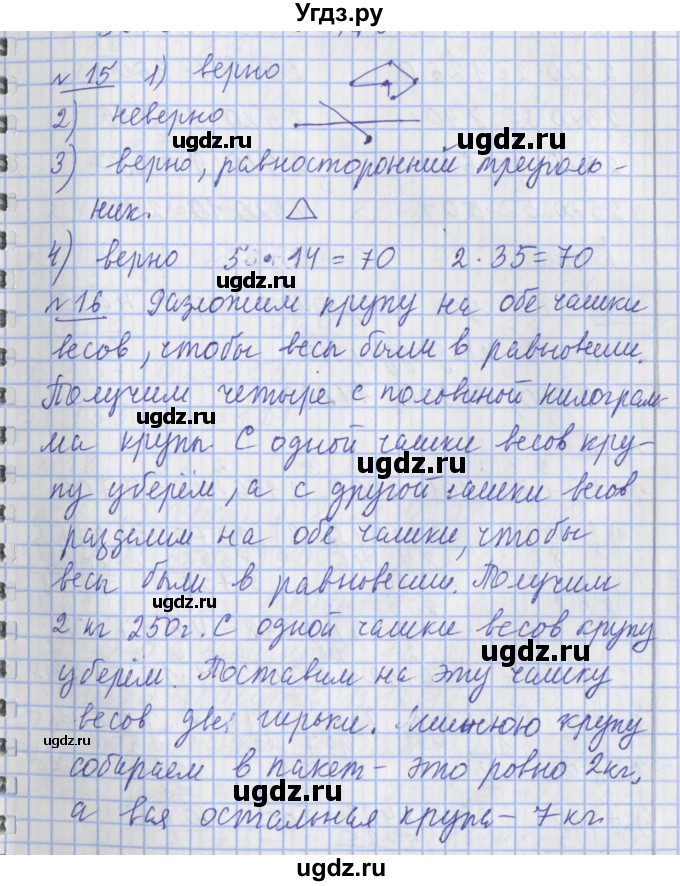 Угдз.ру
№15 1) верно
2) неверно
ugdz.ru ugdz.ru
3) верно, равносторонний треуголь-
ник.
4) верно 5 · 14 = 70 2 · 35 = 70
ugdz.ru
№16 Разложим крупу на обе чашки
весов, чтобы весы были в равновесии.
ugdz.ru
Получим четыре с половиной килограм-
ма крупы. С одной чашки весов кру-
ugdz.ru
пу уберём, а с другой чашки весов
разделим на обе чашки, чтобы
весы были в равновесии. Получим
ugdz.ru
2 кг 250г. С одной чашки весов крупу
уберём. Поставим на эту чашку
ugdz.ru
весов две гирьки. Лишнюю крупу
ugdz.ru
собираем в пакет - это ровно 2кг,
ugdz.ru
а вся остальная крупа - 7 кг.
ugdz.ru